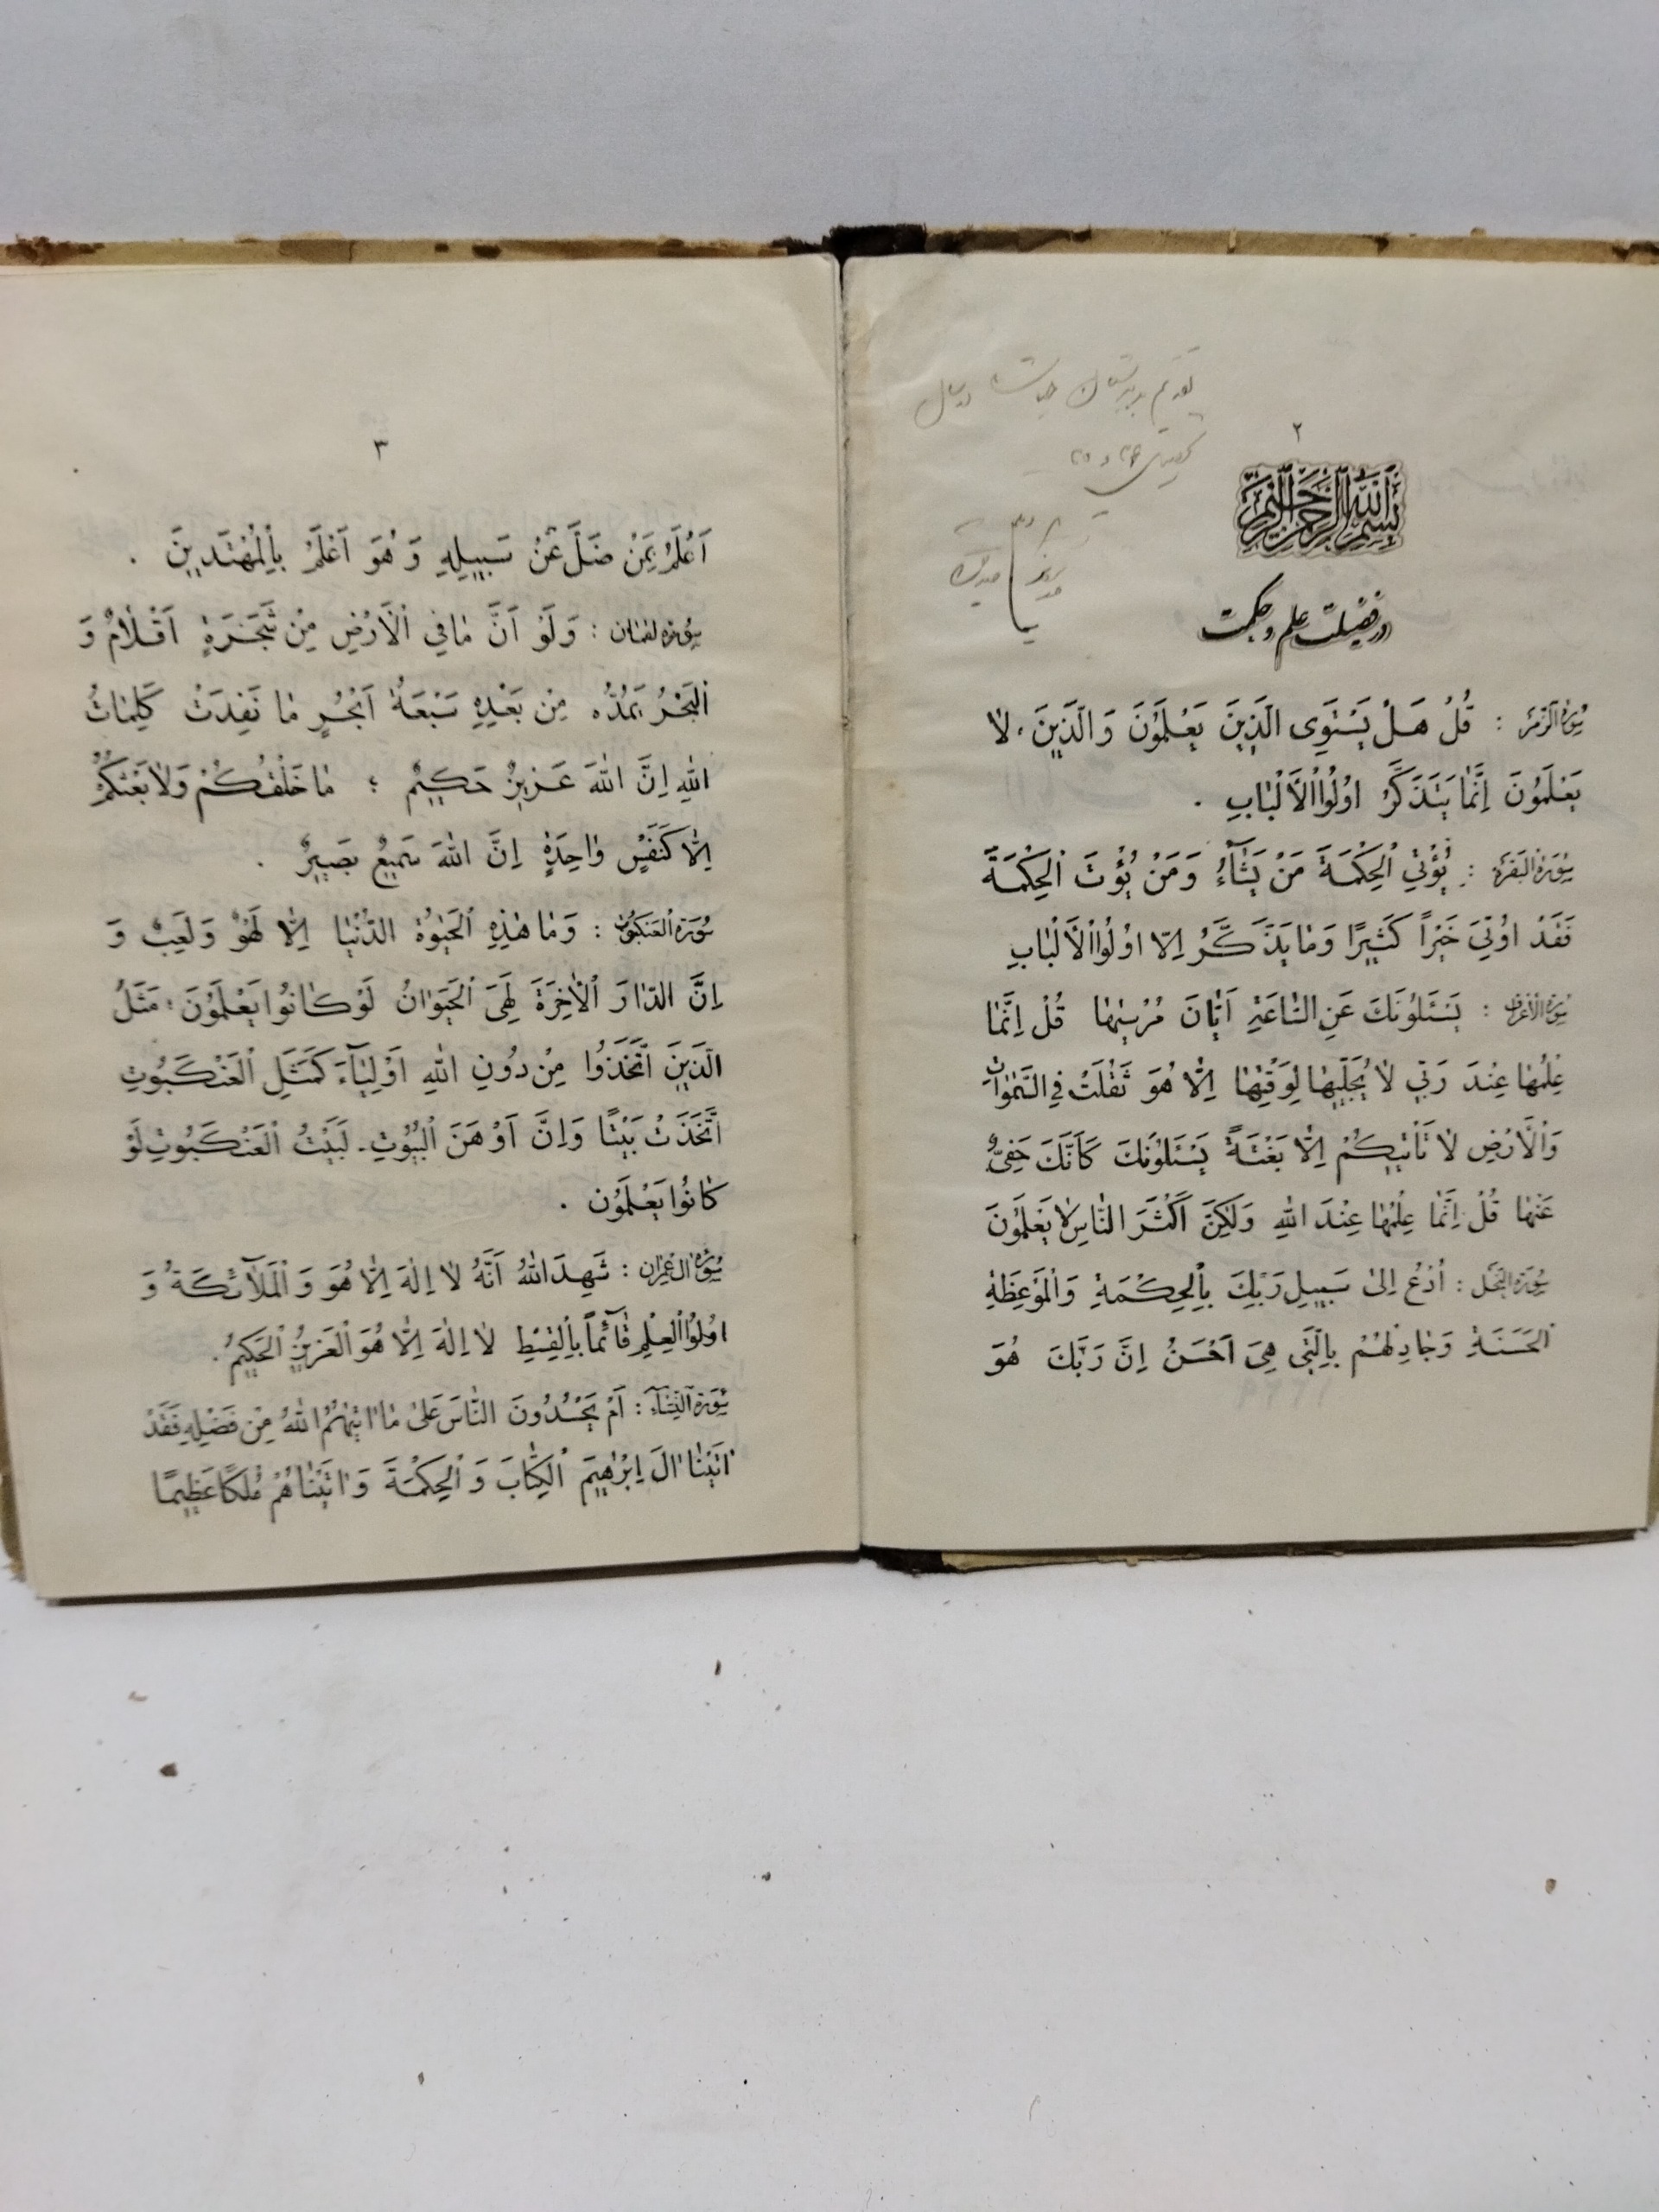 تقدیم بدبیرستان
تحصیلی ۲۴ و ۲۵
۲
بسم الله الرحمن الرحیم
در فضیلت علم و حکمت
سُورَةُ الزُّمَرِ : قُلْ هَلْ يَسْتَوِى الَّذِينَ يَعْلَمُونَ وَ الَّذِينَ لَا
يَعْلَمُونَ اِنَّمَا يَتَذَكَّرُ اوُلُوا الْأَلْبَابِ .
سُورَةُ الْبَقَرَةِ : يُؤْتِي الْحِكْمَةَ مَنْ يَشَآءُ وَ مَنْ يُؤْتَ الْحِكْمَةَ
فَقَدْ اوُتِيَ خَيْراً كَثِيرًا وَ مَا يَذَّكَّرُ اِلَّا اوُلُوا الْأَلْبَابِ
سُورَةُ الْأَعْرَافِ : يَسْئَلُونَكَ عَنِ السَّاعَةِ اَيَّانَ مُرْسٰيهَا قُلْ اِنَّمَا
عِلْمُهَا عِنْدَ رَبِّي لَا يُجَلِّيهَا لِوَقْتِهَا اِلَّا هُوَ ثَقُلَتْ فِي السَّمٰوَاتِ
وَ الْأَرْضِ لَا تَأْتِيكُمْ اِلَّا بَغْتَةً يَسْئَلُونَكَ كَاَنَّكَ حَفِيٌّ
عَنْهَا قُلْ اِنَّمَا عِلْمُهَا عِنْدَ اللّٰهِ وَلٰكِنَّ اَكْثَرَ النَّاسِ لَا يَعْلَمُونَ
سُورَةُ النَّحْلِ : اُدْعُ اِلىٰ سَبِيلِ رَبِّكَ بِالْحِكْمَةِ وَ الْمَوْعِظَةِ
الْحَسَنَةِ وَ جَادِلْهُمْ بِالَّتِى هِىَ اَحْسَنُ اِنَّ رَبَّكَ هُوَ
۳
اَعْلَمُ بِمَنْ ضَلَّ عَنْ سَبِيلِهِ وَ هُوَ اَعْلَمُ بِالْمُهْتَدِينَ .
سُورَةُ لقمان : وَ لَوْ اَنَّ مَا فِي الْأَرْضِ مِنْ شَجَرَةٍ اَقْلَامٌ وَ
الْبَحْرُ يَمُدُّه مِنْ بَعْدِهِ سَبْعَةُ اَبْحُرٍ مَا نَفِدَتْ كَلِمَاتُ
اللّٰهِ اِنَّ اللّٰهَ عَزِيزٌ حَكِيمٌ ؛ مَا خَلْقُكُمْ وَلَا بَعْثُكُمْ
اِلَّا كَنَفْسٍ وٰاحِدَةٍ اِنَّ اللّٰهَ سَمِيعٌ بَصِيرٌ .
سُورَةُ الْعَنْكَبُوتِ : وَ مَا هٰذِهِ الْحَيٰوةُ الدُّنْيَا اِلَّا لَهْوٌ وَ لَعِبٌ وَ
اِنَّ الدَّارَ الْاٰخِرَةَ لَهِىَ الْحَيَوَانُ لَوْ كَانُوا يَعْلَمُونَ ؛ مَثَلُ
الَّذِينَ اتَّخَذُوا مِنْ دُونِ اللّٰهِ اَوْلِيَآءَ كَمَثَلِ الْعَنْكَبُوتِ
اتَّخَذَتْ بَيْتًا وَ اِنَّ اَوْهَنَ الْبُيُوتِ - لَبَيْتُ الْعَنْكَبُوتِ لَوْ
كَانُوا يَعْلَمُون .
سُورَةُ الِ عِمْرٰان : شَهِدَ اللّٰهُ اَنَّهُ لَا اِلٰهَ اِلَّا هُوَ وَ الْمَلَآئِكَةُ وَ
اوُلُوا الْعِلْمِ قَآئِماً بِالْقِسْطِ لَا اِلٰهَ اِلَّا هُوَ الْعَزِيزُ الْحَكِيمُ .
سُورَةُ النِّسَآءِ : اَمْ يَحْسُدُونَ النَّاسَ عَلىٰ مَا اٰتٰيهُمُ اللّٰهُ مِنْ فَضْلِهِ فَقَدْ
اٰتَيْنَا اٰلَ اِبْرٰهِيمَ الْكِتَابَ وَ الْحِكْمَةَ وَ اٰتَيْنَاهُمْ مُلْكًا عَظِيمًا